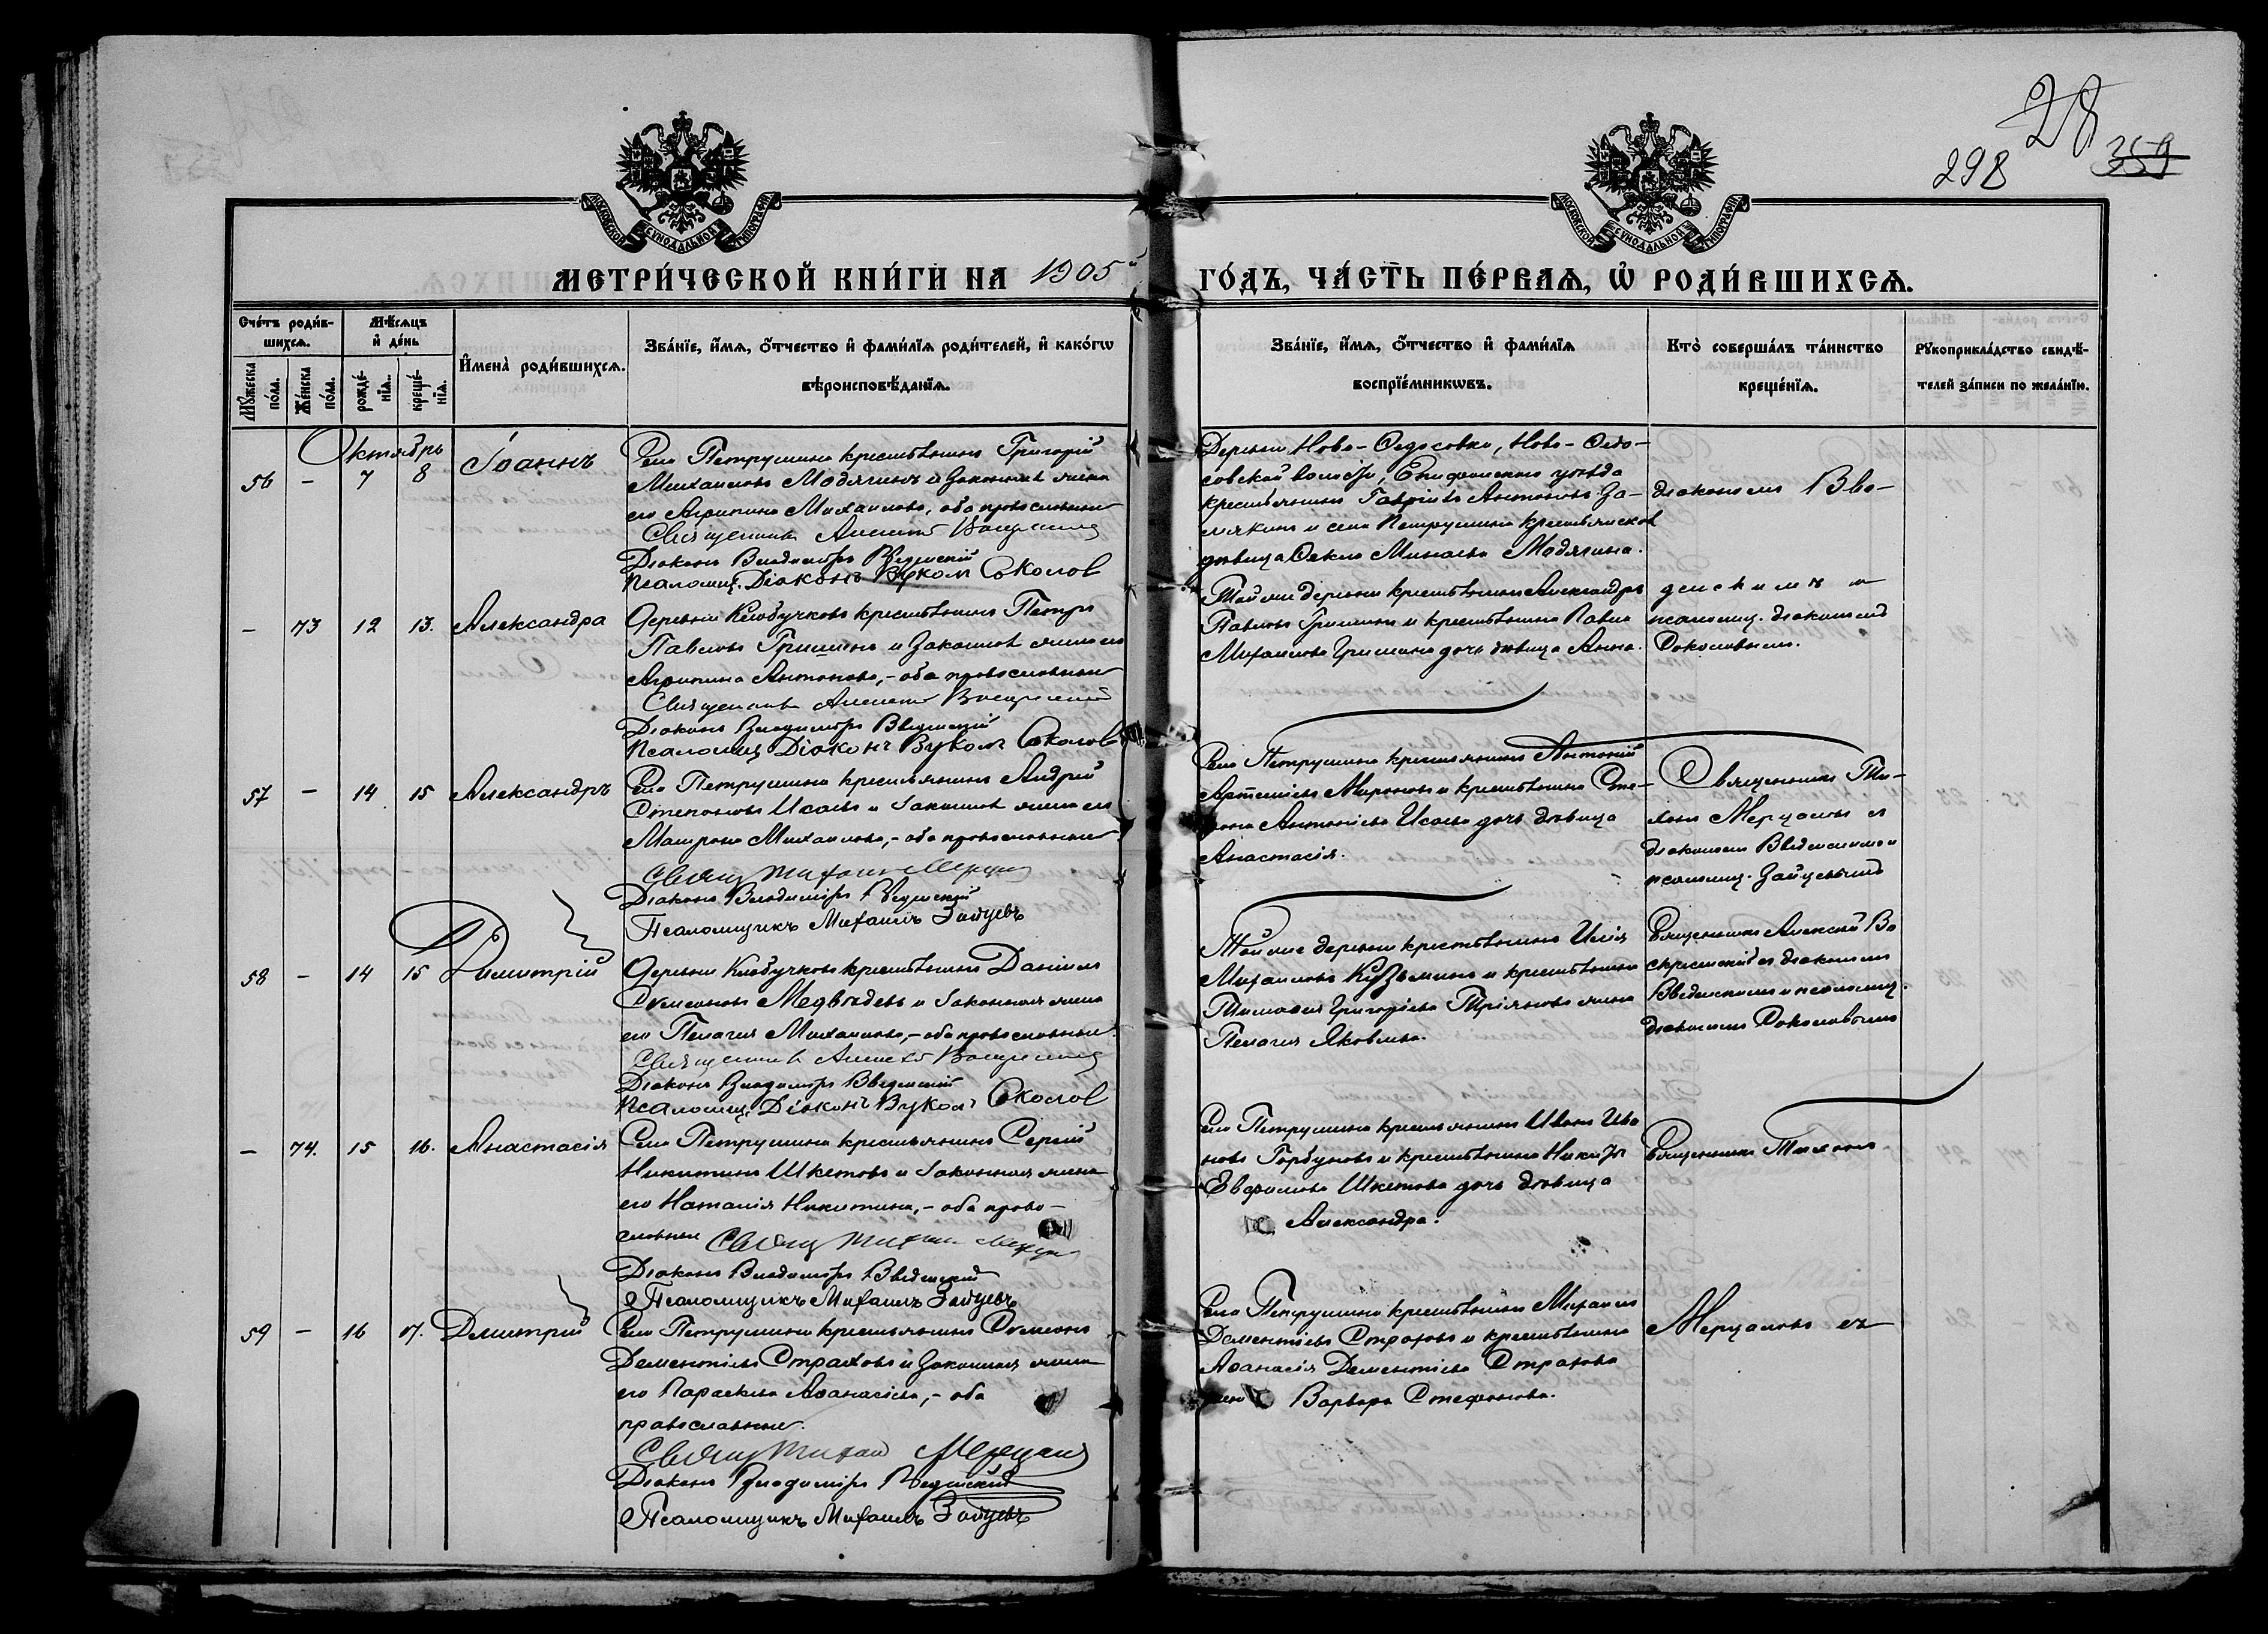 28
298
359
МОСКОВСКОЙ СѴНОДАЛЬНОЙ ТИПОГРАФІИ
МОСКОВСКОЙ СѴНОДАЛЬНОЙ ТИПОГРАФІИ
МЕТРИ́ЧЕСКОЙ КНИ́ГИ НА 1905й
ГО́ДЪ, ЧА́СТЬ ПЕ́РВАѦ, Ѡ҆ РОДИ́ВШИХСѦ.
Сче́тъ роди́в-
шихсѧ.
Мѣ́сѧцъ
и҆ де́нь
И҆мена̀ роди́вшихсѧ.
Зва́нїе, и҆́мѧ, ѻ҆́тчество и҆ фами́лїѧ роди́телей, и҆ како́гѡ
вѣроисповѣ́данїѧ.
Мꙋ́жеска по́ла.
Же́нска по́ла.
рожде́-нїѧ.
креще́-нїѧ.
Зва́нїе, и҆́мѧ, ѻ҆́тчество и҆ фами́лїѧ
воспрїе́мникѡвъ.
Кто̀ соверша́лъ та́инство
креще́нїѧ.
Рꙋкоприкла́дство свидѣ́-
телей за́писи по жела́нїю.
Октябрь
56 - 7 8 Іоаннъ
Села Петрушина крестьянинъ Григорій
Михаиловъ Модягинъ и законная жена
его Агрипина Михаилова, оба православные
Священникъ Алексій Воскресенскій
Діаконъ Владиміръ Введенскій
Псаломщ. Діаконъ Вуколъ Соколов
Деревни Ново-Федосовки, Ново-Федо-
совской волости, Епифанскаго уѣзда
крестьянинъ Гавріилъ Антоновъ За-
мякинъ и села Петрушина крестьянская
дѣвица Фекла Минаева Модягина.
діакономъ Вве-
- 73 12 13. Александра
Деревни Клобучковъ крестьянинъ Петръ
Павловъ Гришинъ и законная жена его
Агрипина Антонова, - оба православные
Священникъ Алексій Воскресенскій
Діаконъ Владиміръ Введенскій
Псаломщ Діаконъ Вуколъ Соколов
Той же деревни крестьянинъ Александръ
Павловъ Гришинъ и крестьянина Павла
Михаилова Гришина дочь дѣвица Анна.
денскимъ и
псаломщ. діакономъ
Соколовымъ.
57 - 14 15 Александръ
Села Петрушина крестьянинъ Андрей
Степановъ Исаевъ и законная жена его
Матрона Михаилова, - оба православные
Священ Тихонъ Мерцаловъ
Діаконъ Владиміръ Введенскій
Псаломщикъ Михаилъ Зайцевъ
Села Петрушина крестьянинъ Антоній
Артемьевъ Мироновъ и крестьянина Сте-
пана Антоньева Исаева дочь дѣвица
Анастасія.
Священникъ Ти-
хонъ Мерцаловъ съ
діакономъ Введенскимъ и
псаломщ. Зайцевымъ
58 - 14 15 Димитрій
Деревни Клобучковъ крестьянинъ Даніилъ
Симеоновъ Медвѣдевъ и законная жена
его Пелагія Михаилова, - оба православные
Священникъ Алексій Воскресенскій
Діаконъ Владиміръ Введенскій
Псаломщ. Діаконъ Вуколъ Соколов
Той же деревни крестьянинъ Илія
Михаиловъ Кузьминъ и крестьянина
Тимофея Григорьева жена
Пелагія Яковлева.
Священникъ Алексій Во
скресенскій съ діакономъ
Введенскимъ и псаломщ.
діакономъ Соколовымъ
- 74. 15 16. Анастасія
Села Петрушина крестьянинъ Сергій
Никитинъ Шкетовъ и законная жена
его Наталія Никитина, - оба право-
славные Священ Тихонъ Мерцалов
Діаконъ Владиміръ Введенскій
Псаломщикъ Михаилъ Зайцевъ
Села Петрушина крестьянинъ Иванъ Ива
новъ Горбуновъ и крестьянина Никиты
Евфимова Шкетова дочь дѣвица
Александра.
Священникъ Тихонъ
59 - 16 17. Димитрій
Села Петрушина крестьянинъ Симеонъ
Дементьевъ Страховъ и законная жена
его Параскева Афанасьева, - оба
православные.
Священ Тихон Мерцалов
Діаконъ Владиміръ Введенскій
Псаломщикъ Михаилъ Зайцевъ
Села Петрушина крестьянинъ Михаилъ
Дементьевъ Страховъ и крестьянина
Афанасія Дементьева Страхова
жена Варвара Стефанова.
Мерцаловъ съ